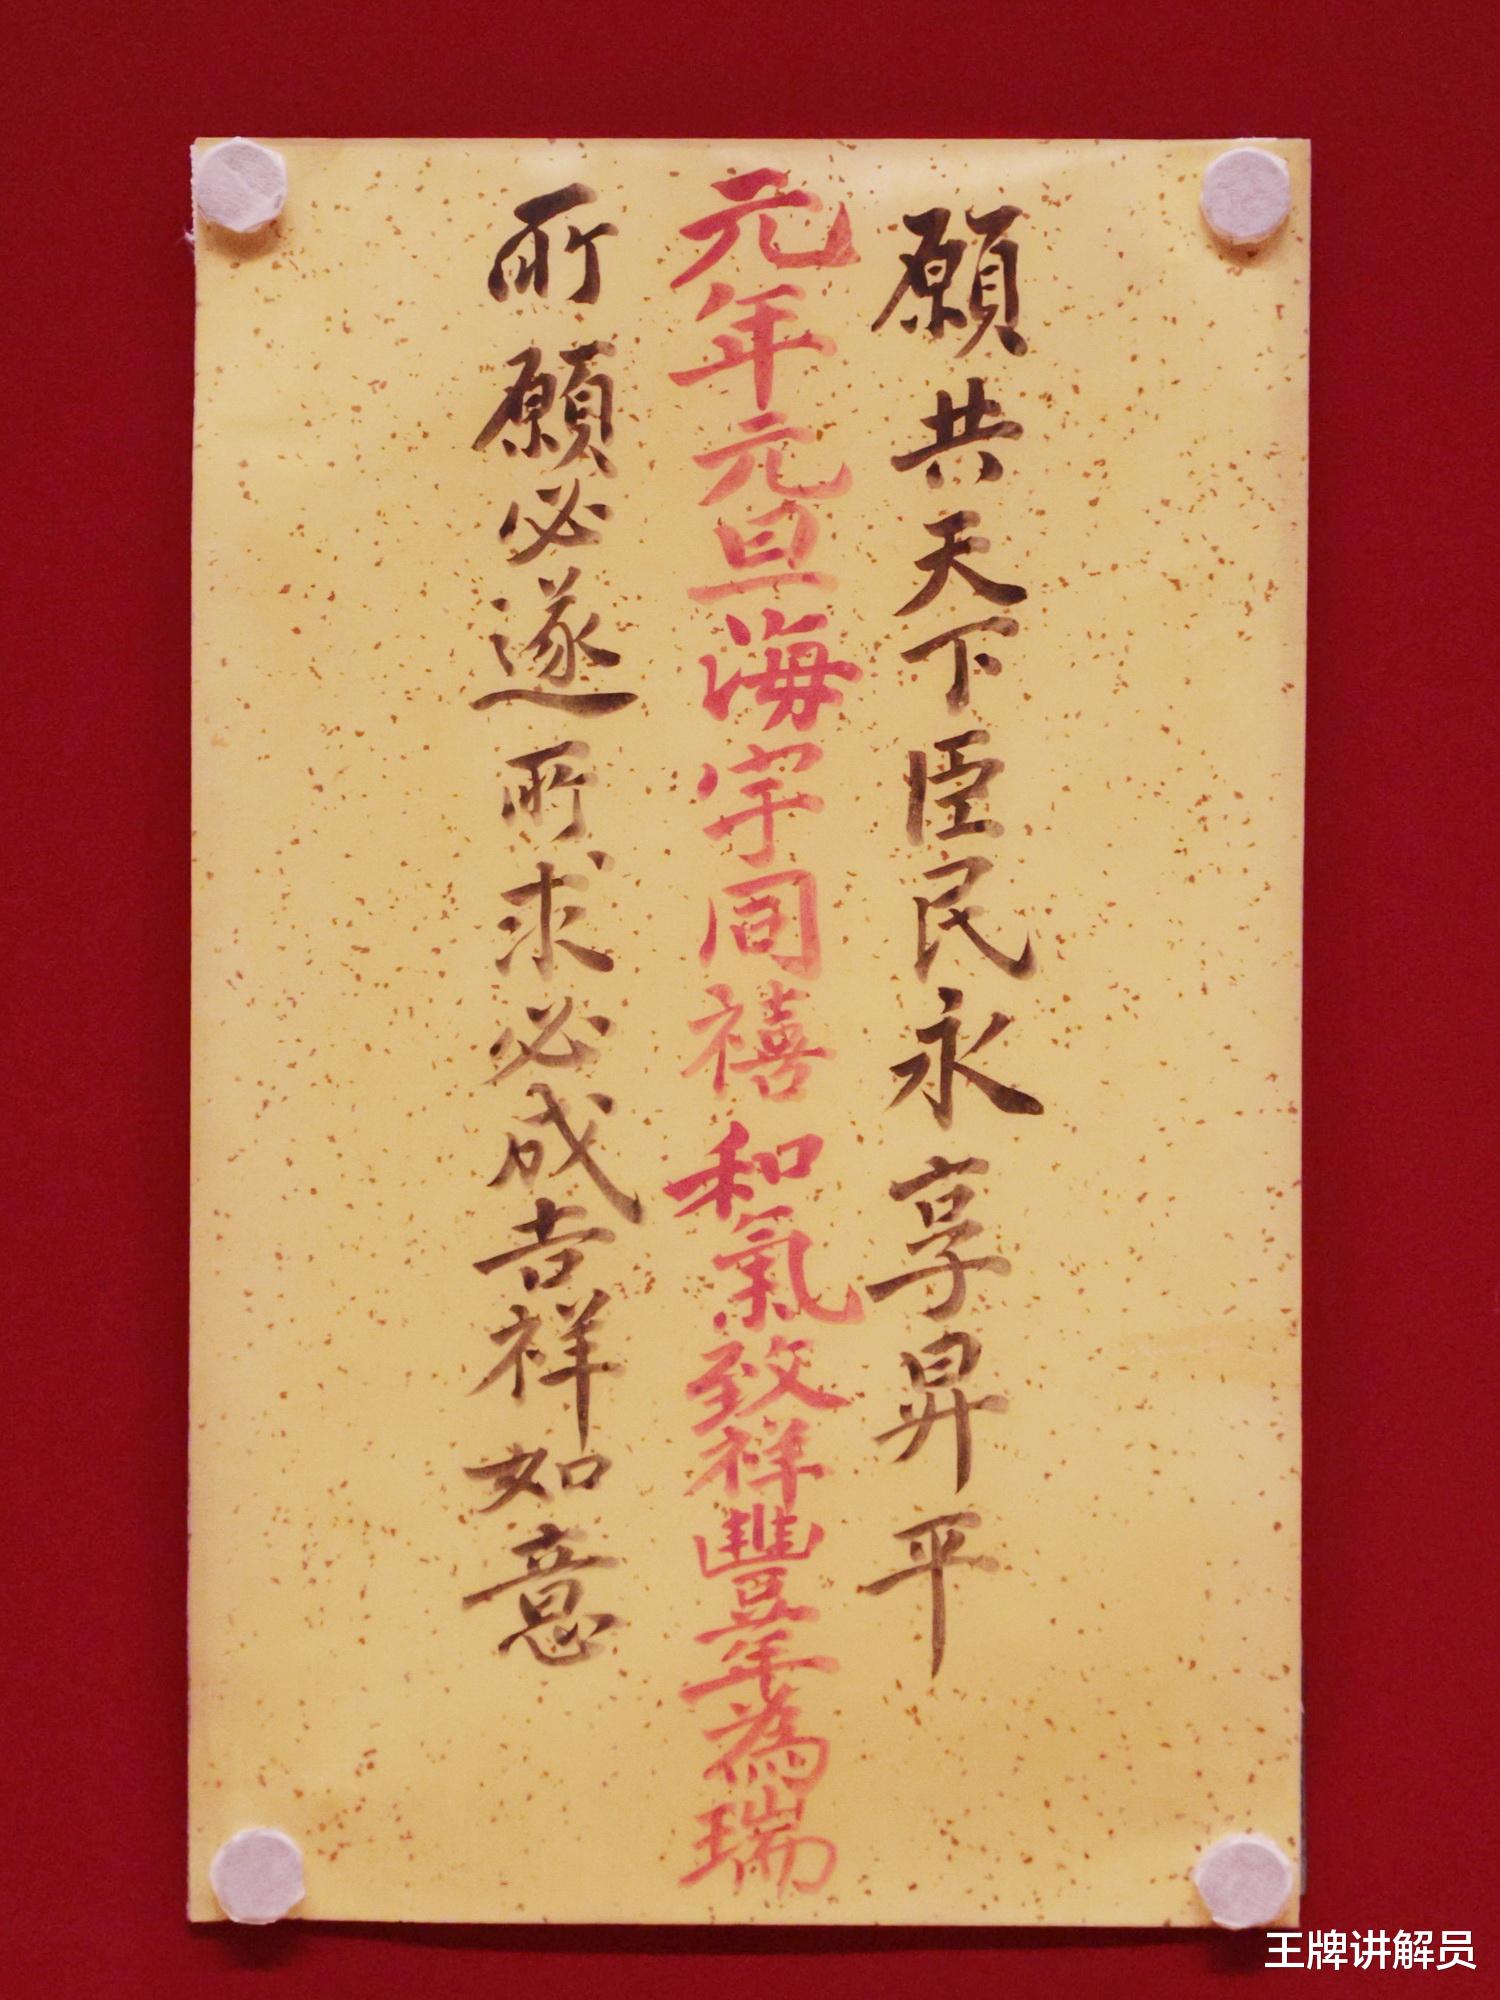 願共天下臣民永享昇平
元年元旦海宇同禧和氣致祥豐年為瑞
所願必遂所求必成吉祥如意
王牌讲解员